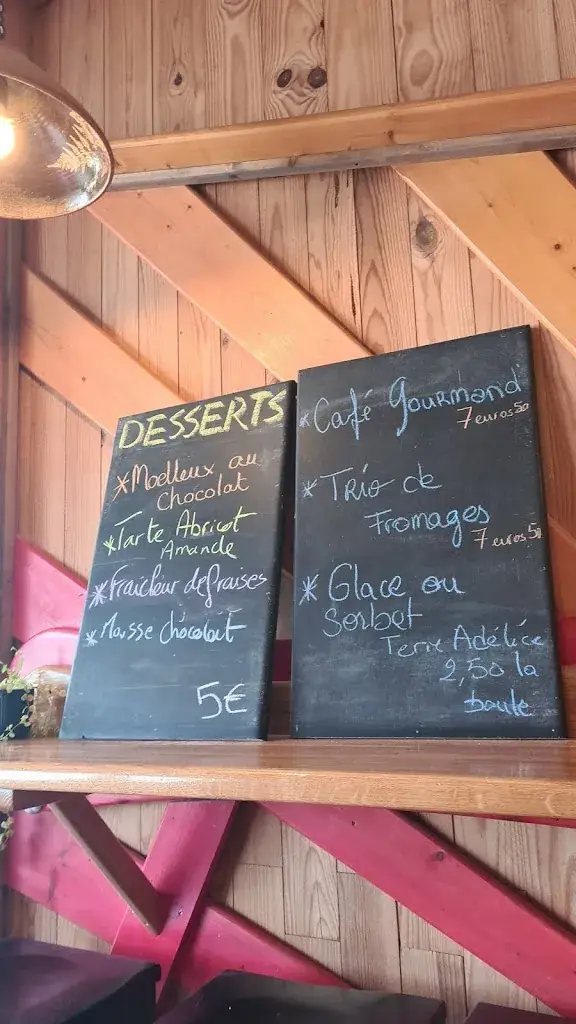 DESSERTS
* Moelleux au
chocolat
* Tarte Abricot
Amande
* Fraicheur de fraises
* Mousse chocolat
5€
* Café gourmand
7 euros 50
* Trio de
Fromages
7 euros 50
* Glace ou
Sorbet
Terre Adélice
2,50 la
boule